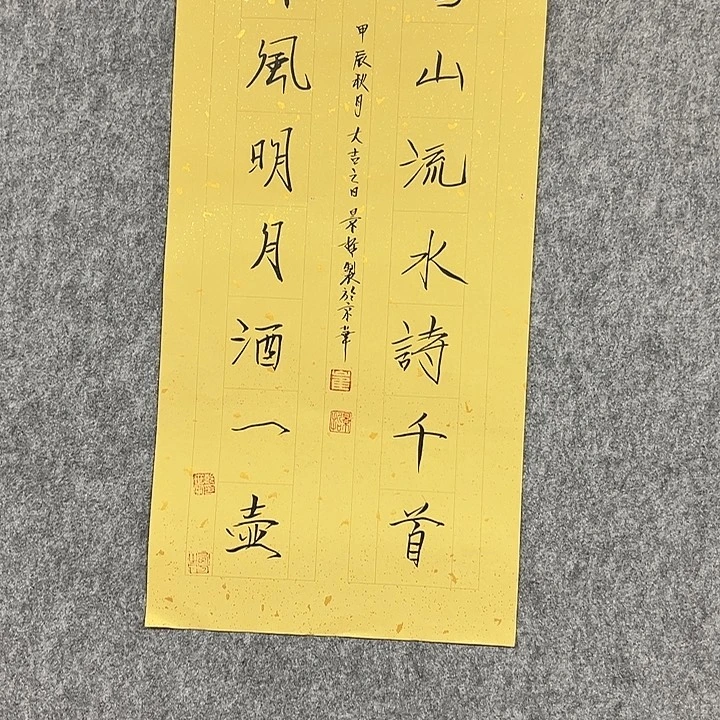 山流水詩千首
風明月酒一壺
甲辰秋月大吉之日景輝製於京華